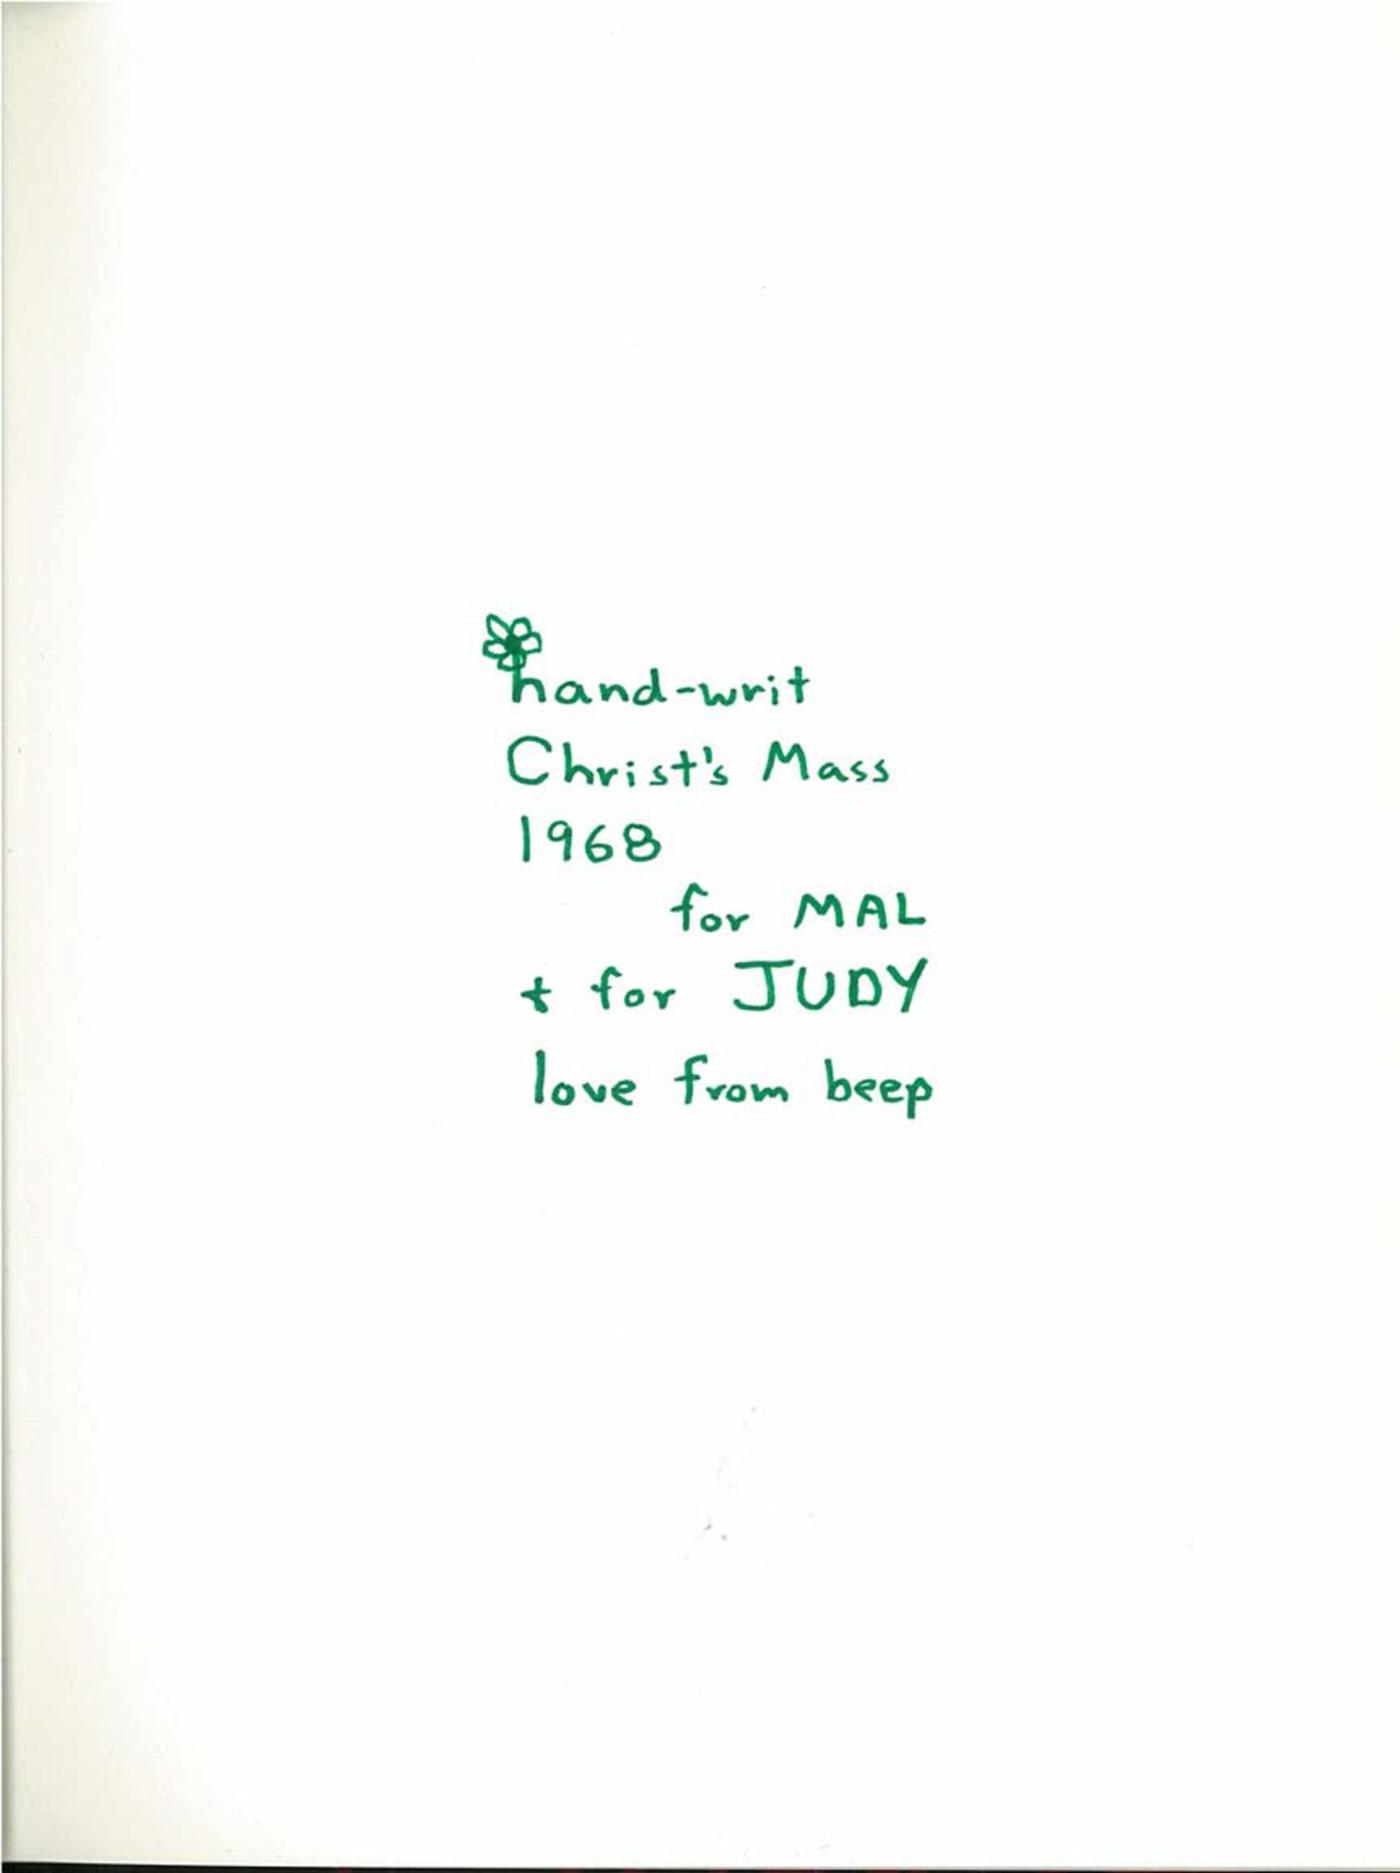 hand-writ
Christ's Mass
1968
for MAL
+ for JUDY
love from beep